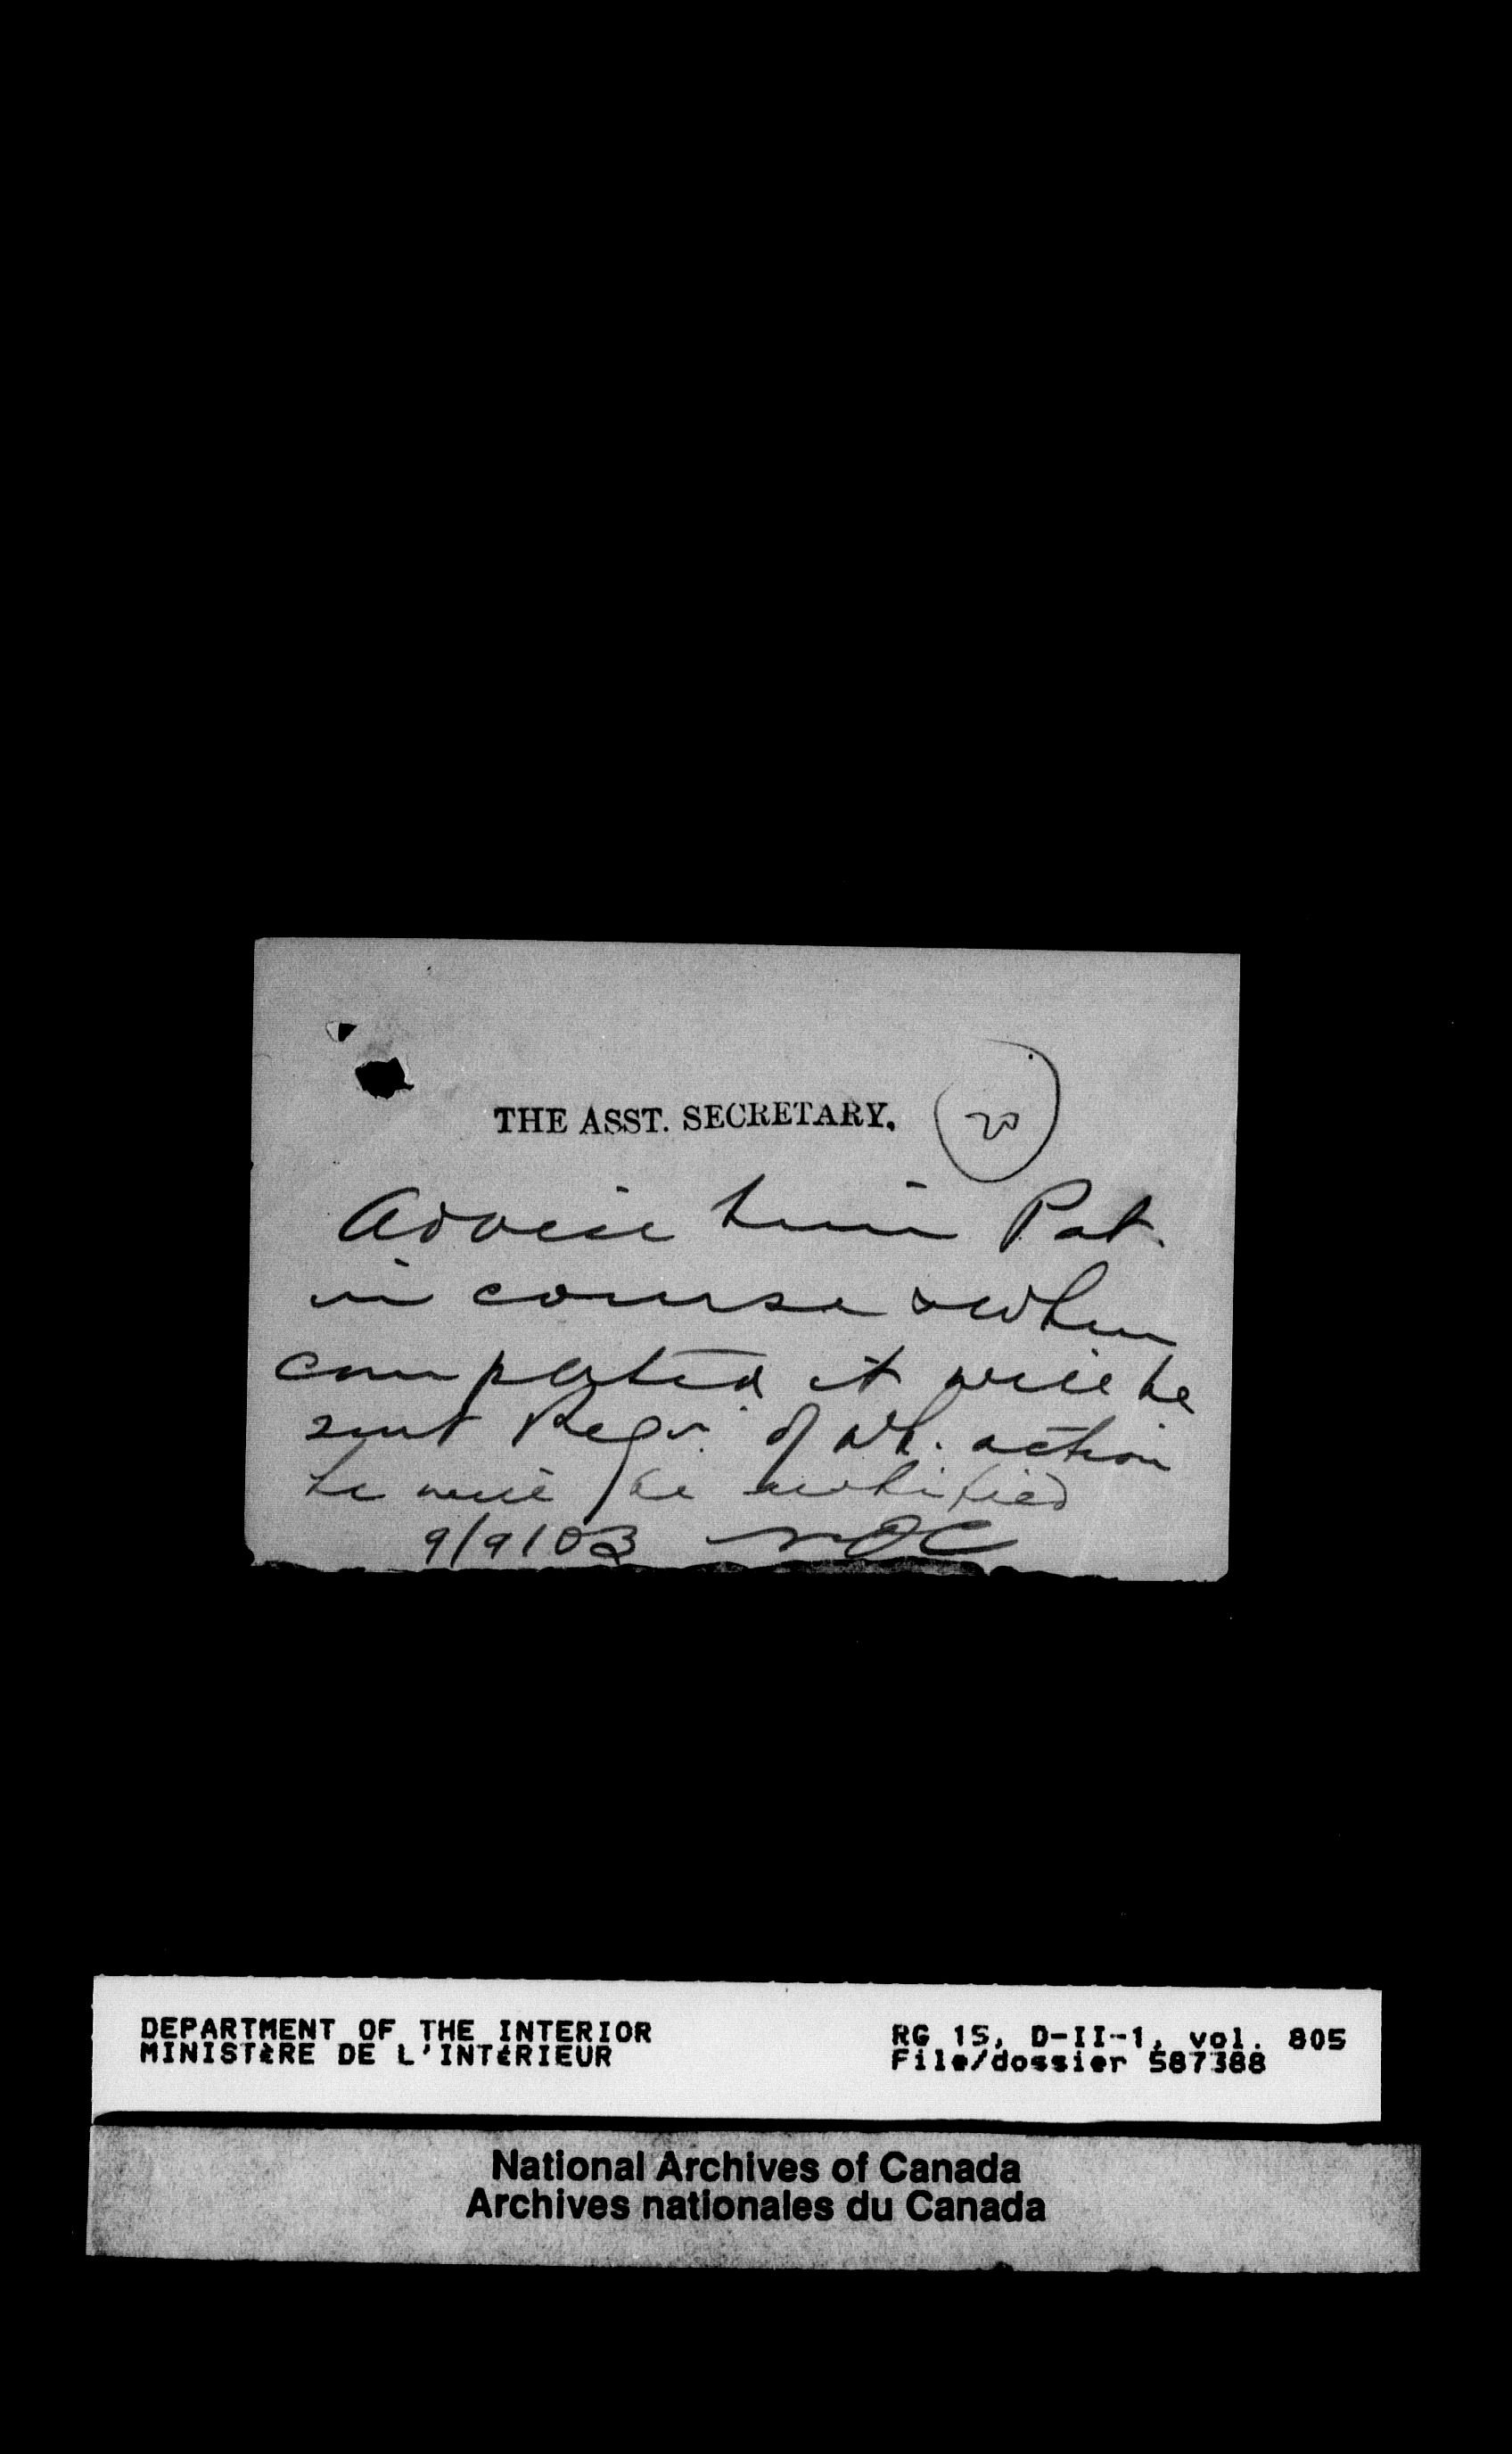 THE ASST. SECRETARY.
20
Advise him Pat.
in course & when
completed it will be
sent Regr. of wh. action
he will be notified
9/9/03
DEPARTMENT OF THE INTERIOR
MINISTÈRE DE L'INTÉRIEUR
RG 15, D-II-1, vol. 805
File/dossier 587388
National Archives of Canada
Archives nationales du Canada